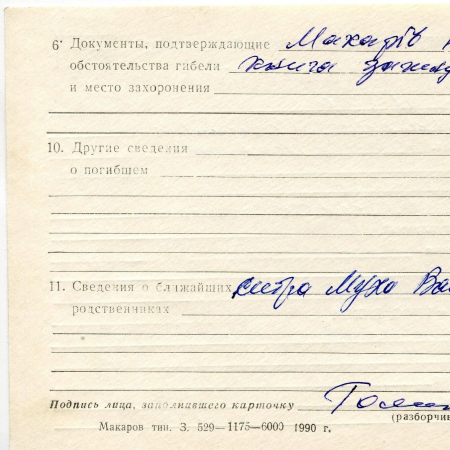 6· Документы, подтверждающие Макарів
обстоятельства гибели книга
и место захоронения
10. Другие сведения
о погибшем
11. Сведения о ближайших сестра Мухо Ва
родственниках
Подпись лица, заполнившего карточку
(разборчив
Макаров тип. З. 529—1175—6000 1990 г.